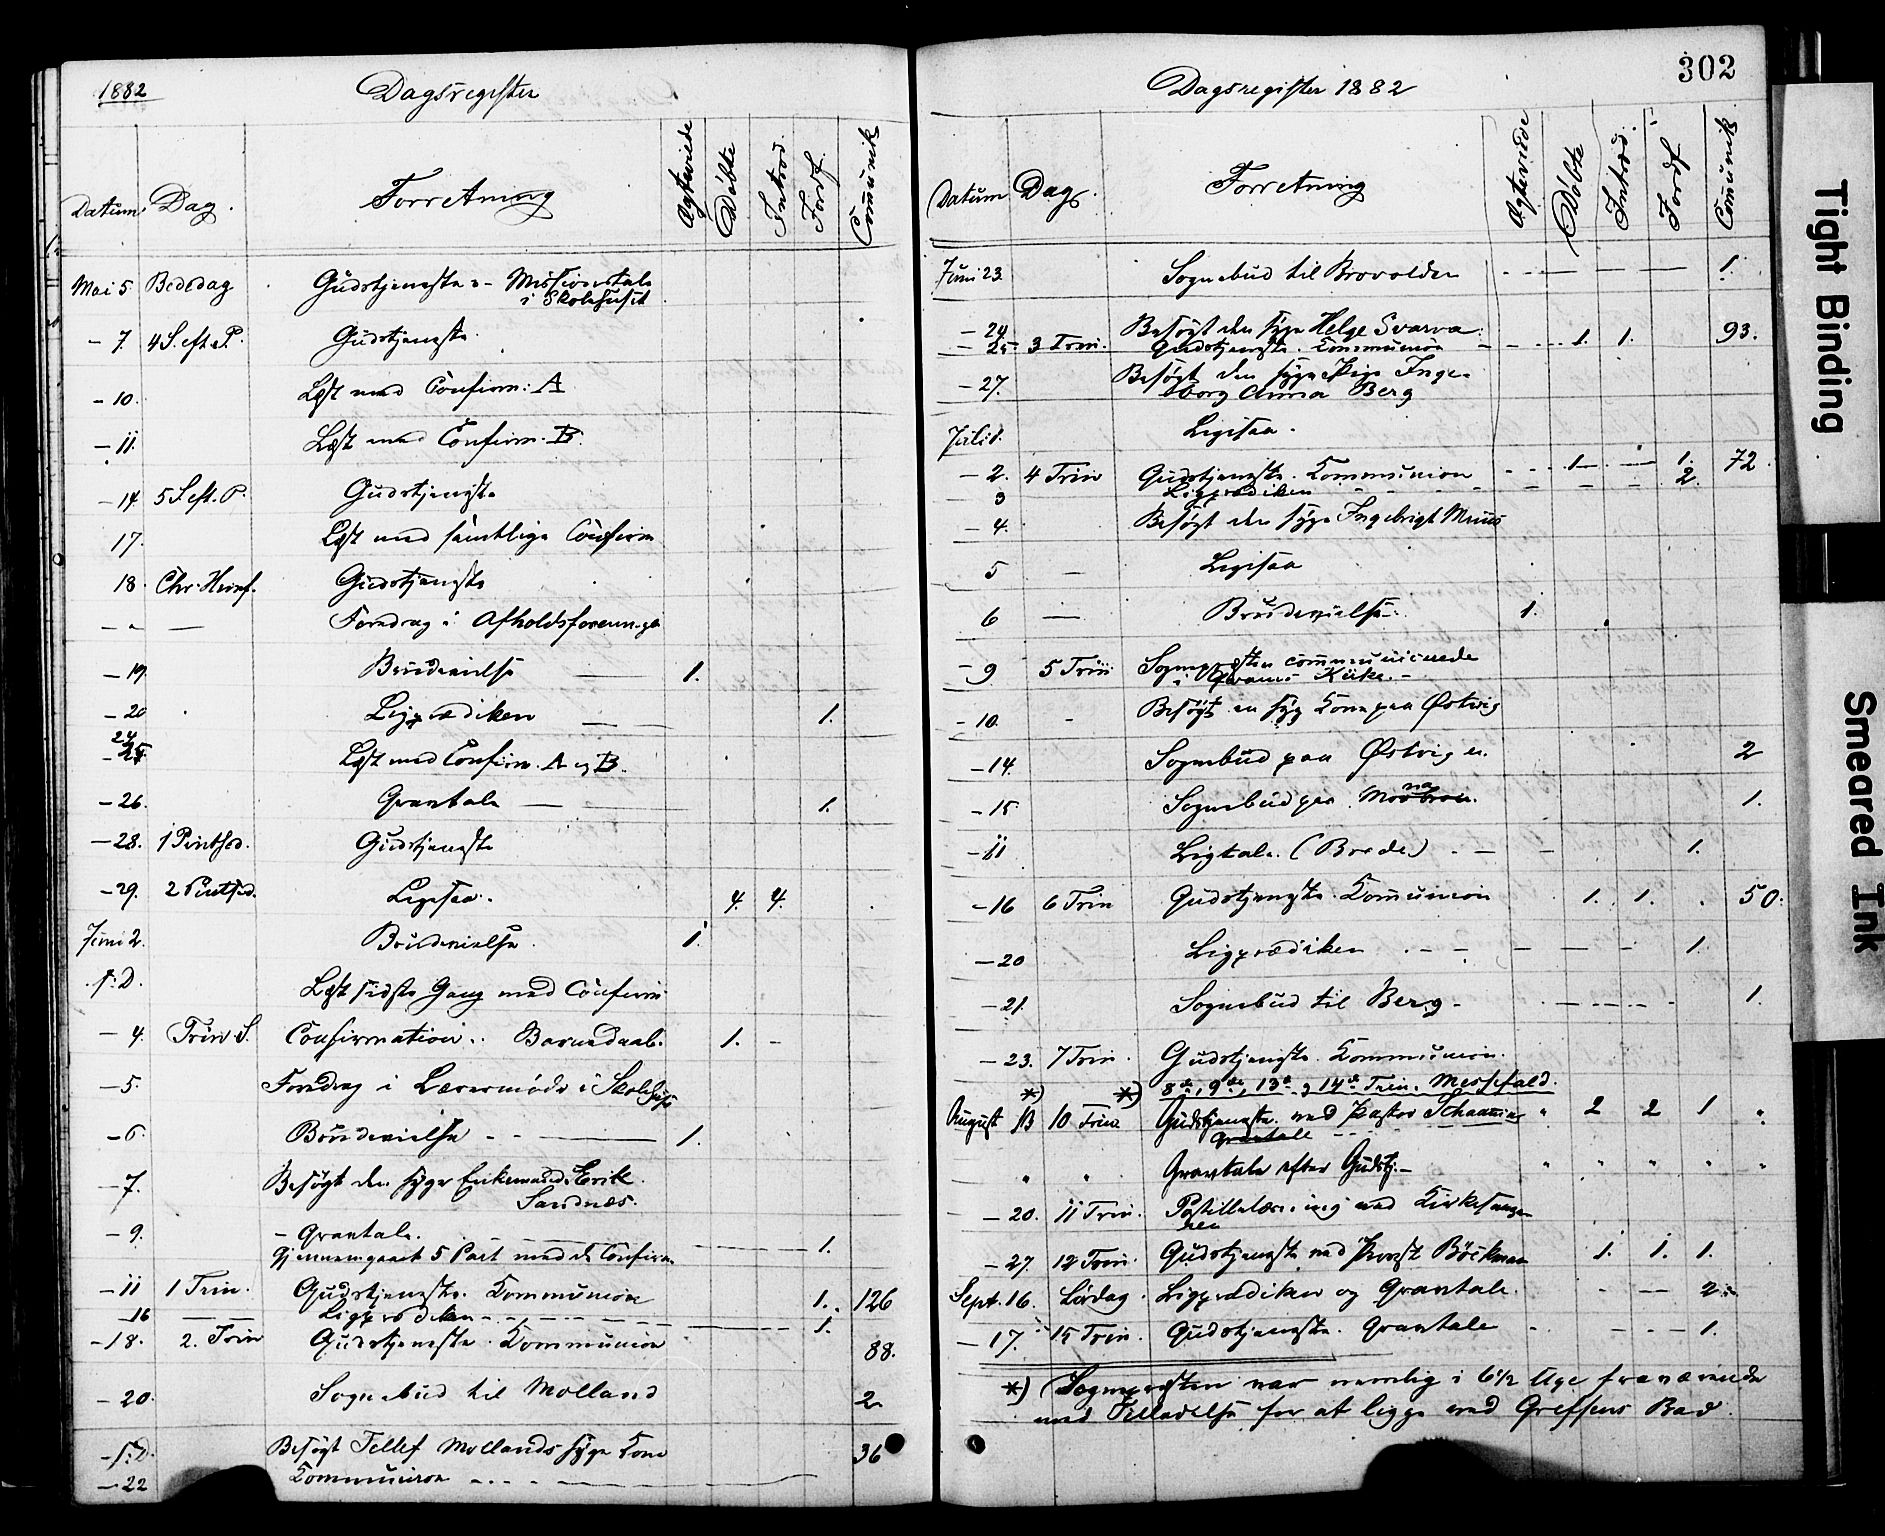 1882 Dagsregister
Datum. Dag. Forretning Ægteviede Döbte Introd. Fordf. Communik
Mai 5 Bededag Gudstjeneste - Missionstale
i Skolehuset
- 7. 4 S. eft. P. Gudstjeneste.
- 10. Læst med Confirm: A
- 11. Læst med Confirm. B.
- 14 5 S. eft. P. Gudstjeneste
17. Læst med samtlige Confirm
18. Chr. Himf. Gudstjeneste
- " - Foredrag i Afholdsforeninge
- 19. Brudevielse 1.
- 20 Ligprædiken 1.
24
- 25 Læst med Confirm. A og B.
- 26. Gravtale 1.
- 28. 1 Pintsed. Gudstjeneste
- 29. 2 Pintsed. Ligesaa. 4. 4.
Juni 2. Brudevielse. 1.
s: D. Læst sidste Gang med Confirm
- 4. Trin S. Confirmation. Barnedaab. 1. -
- 5. Foredrag i Lærermöde i Skolehuse
- 6. Brudevielse - - 1.
- 7. Besögt den syge Enkemand Erik
Sandnæs.
- 9. - Gravtale. 1.
Gjennemgaaet 5 Part med de Confirm
- 11 1 Trin. Gudstjeneste. Kommunion 1. 126
- 16 Ligprædiken 1.
- 18. 2. Trin Gudstjeneste Kommunion 88.
- 20. Sognebud til Molland 2
- s: D. Besögt Tellef Mollands syge Kone 36
- 22 Kommunion
302
Dagsregister 1882
Datum Dag. Forretning Ægteviede Döbte Introd. Fordf. Communik
Juni 23. Sognebud til Brovolden 1.
- 24 Besögt den syge Helge Svarva.
- 25 3 Trin. Gudstjeneste. Kommunion 1. 1. 93.
- 27. Besögt den syge Pige Inge-
borg Anna Berg
Juli 1. Ligesaa.
- 2. 4 Trin Gudstjeneste. Kommunion 1 - 1. 72.
3 Ligprædiken 2.
- 4. Besögt den syge Ingebrigt
5 - Ligesaa
6 - Brudevielse. 1.
- 9 5 Trin Sognepræsten communicerede
i Kirke. -
- 10. - Besögt en syg Kone paa Østvig
- 14. Sognebud paa Østvig 2
- 15. Sognebud paa 1.
- 11 Ligtale. (Borde) 1.
- 16 6 Trin Gudstjeneste. Komunion 1. 1. 50.
- 20 Ligprædiken 1.
- 21. Sognebud til Berg - 1.
- 23. 7 Trin. Gudstjeneste. Kommunion.
*) *) 8de, 9de, 13de og 14de Trin. Messefald.
August 13 10 Trin Gudstjeneste ved Pastor Schaaning " 2 2 1 "
Gravtale
" " Gravtale efter Gudstj. - " " " " "
- 20. 11 Trin. Postillelæsning ved Kirkesange-
ren
- 27. 12 Trin. Gudstjeneste ved Provst Böckman 1. 1. 1.
Sept. 16. Lördag. Ligprædiken og Gravtale. 2.
- 17. 15 Trin. Gudstjeneste. Gravtale 1.
*) Sognepræsten var nemlig i 6½ Uge fraværende
med Tilladelse for at ligge ved Grefsens Bad.
Tight Binding
Smeared Ink